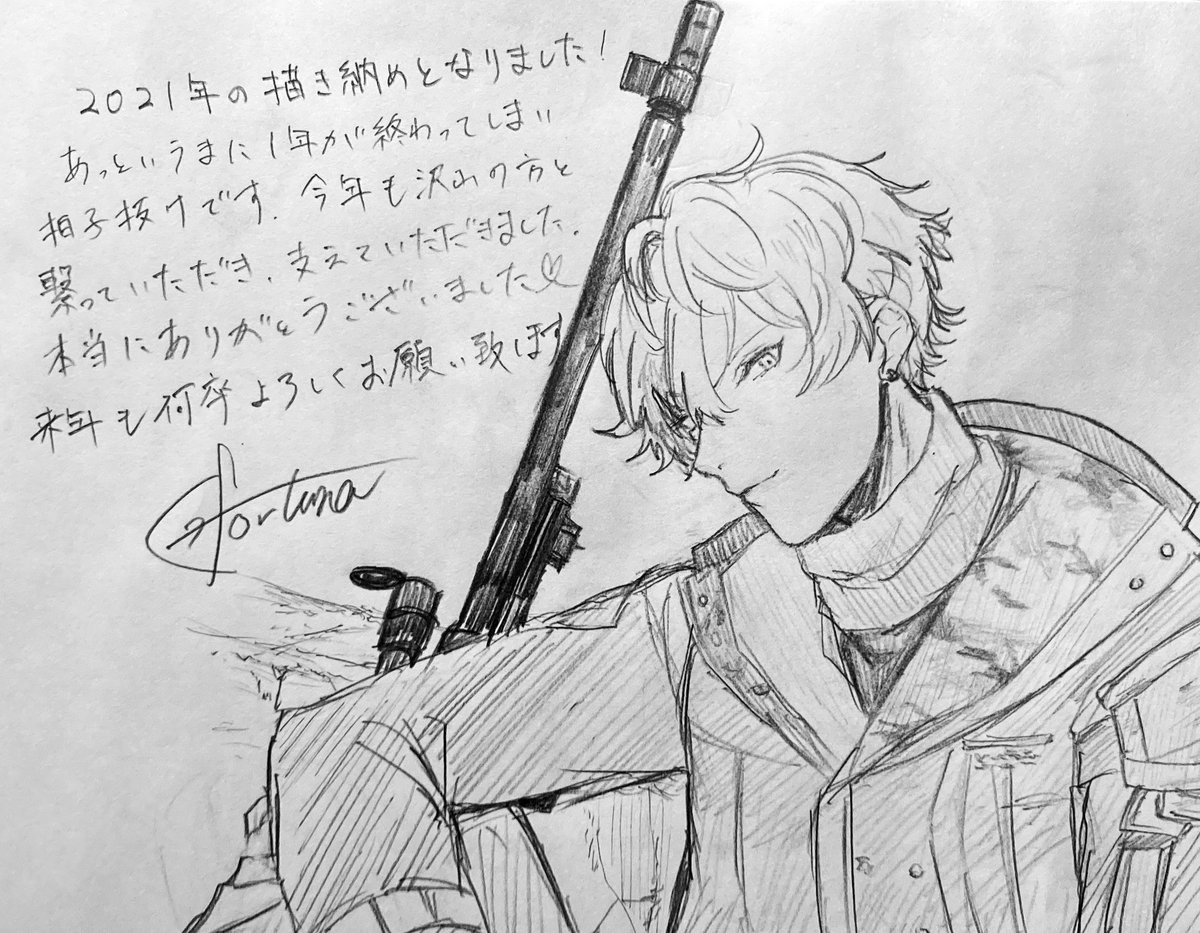 2021年の描き納めとなりました!
あっというまに1年が終わってしまい
拍子抜けです. 今年も沢山の方と
繋っていただき、支えていただきました.
本当にありがとうございました♡
来年も何卒よろしくお願い致します
Fortuna